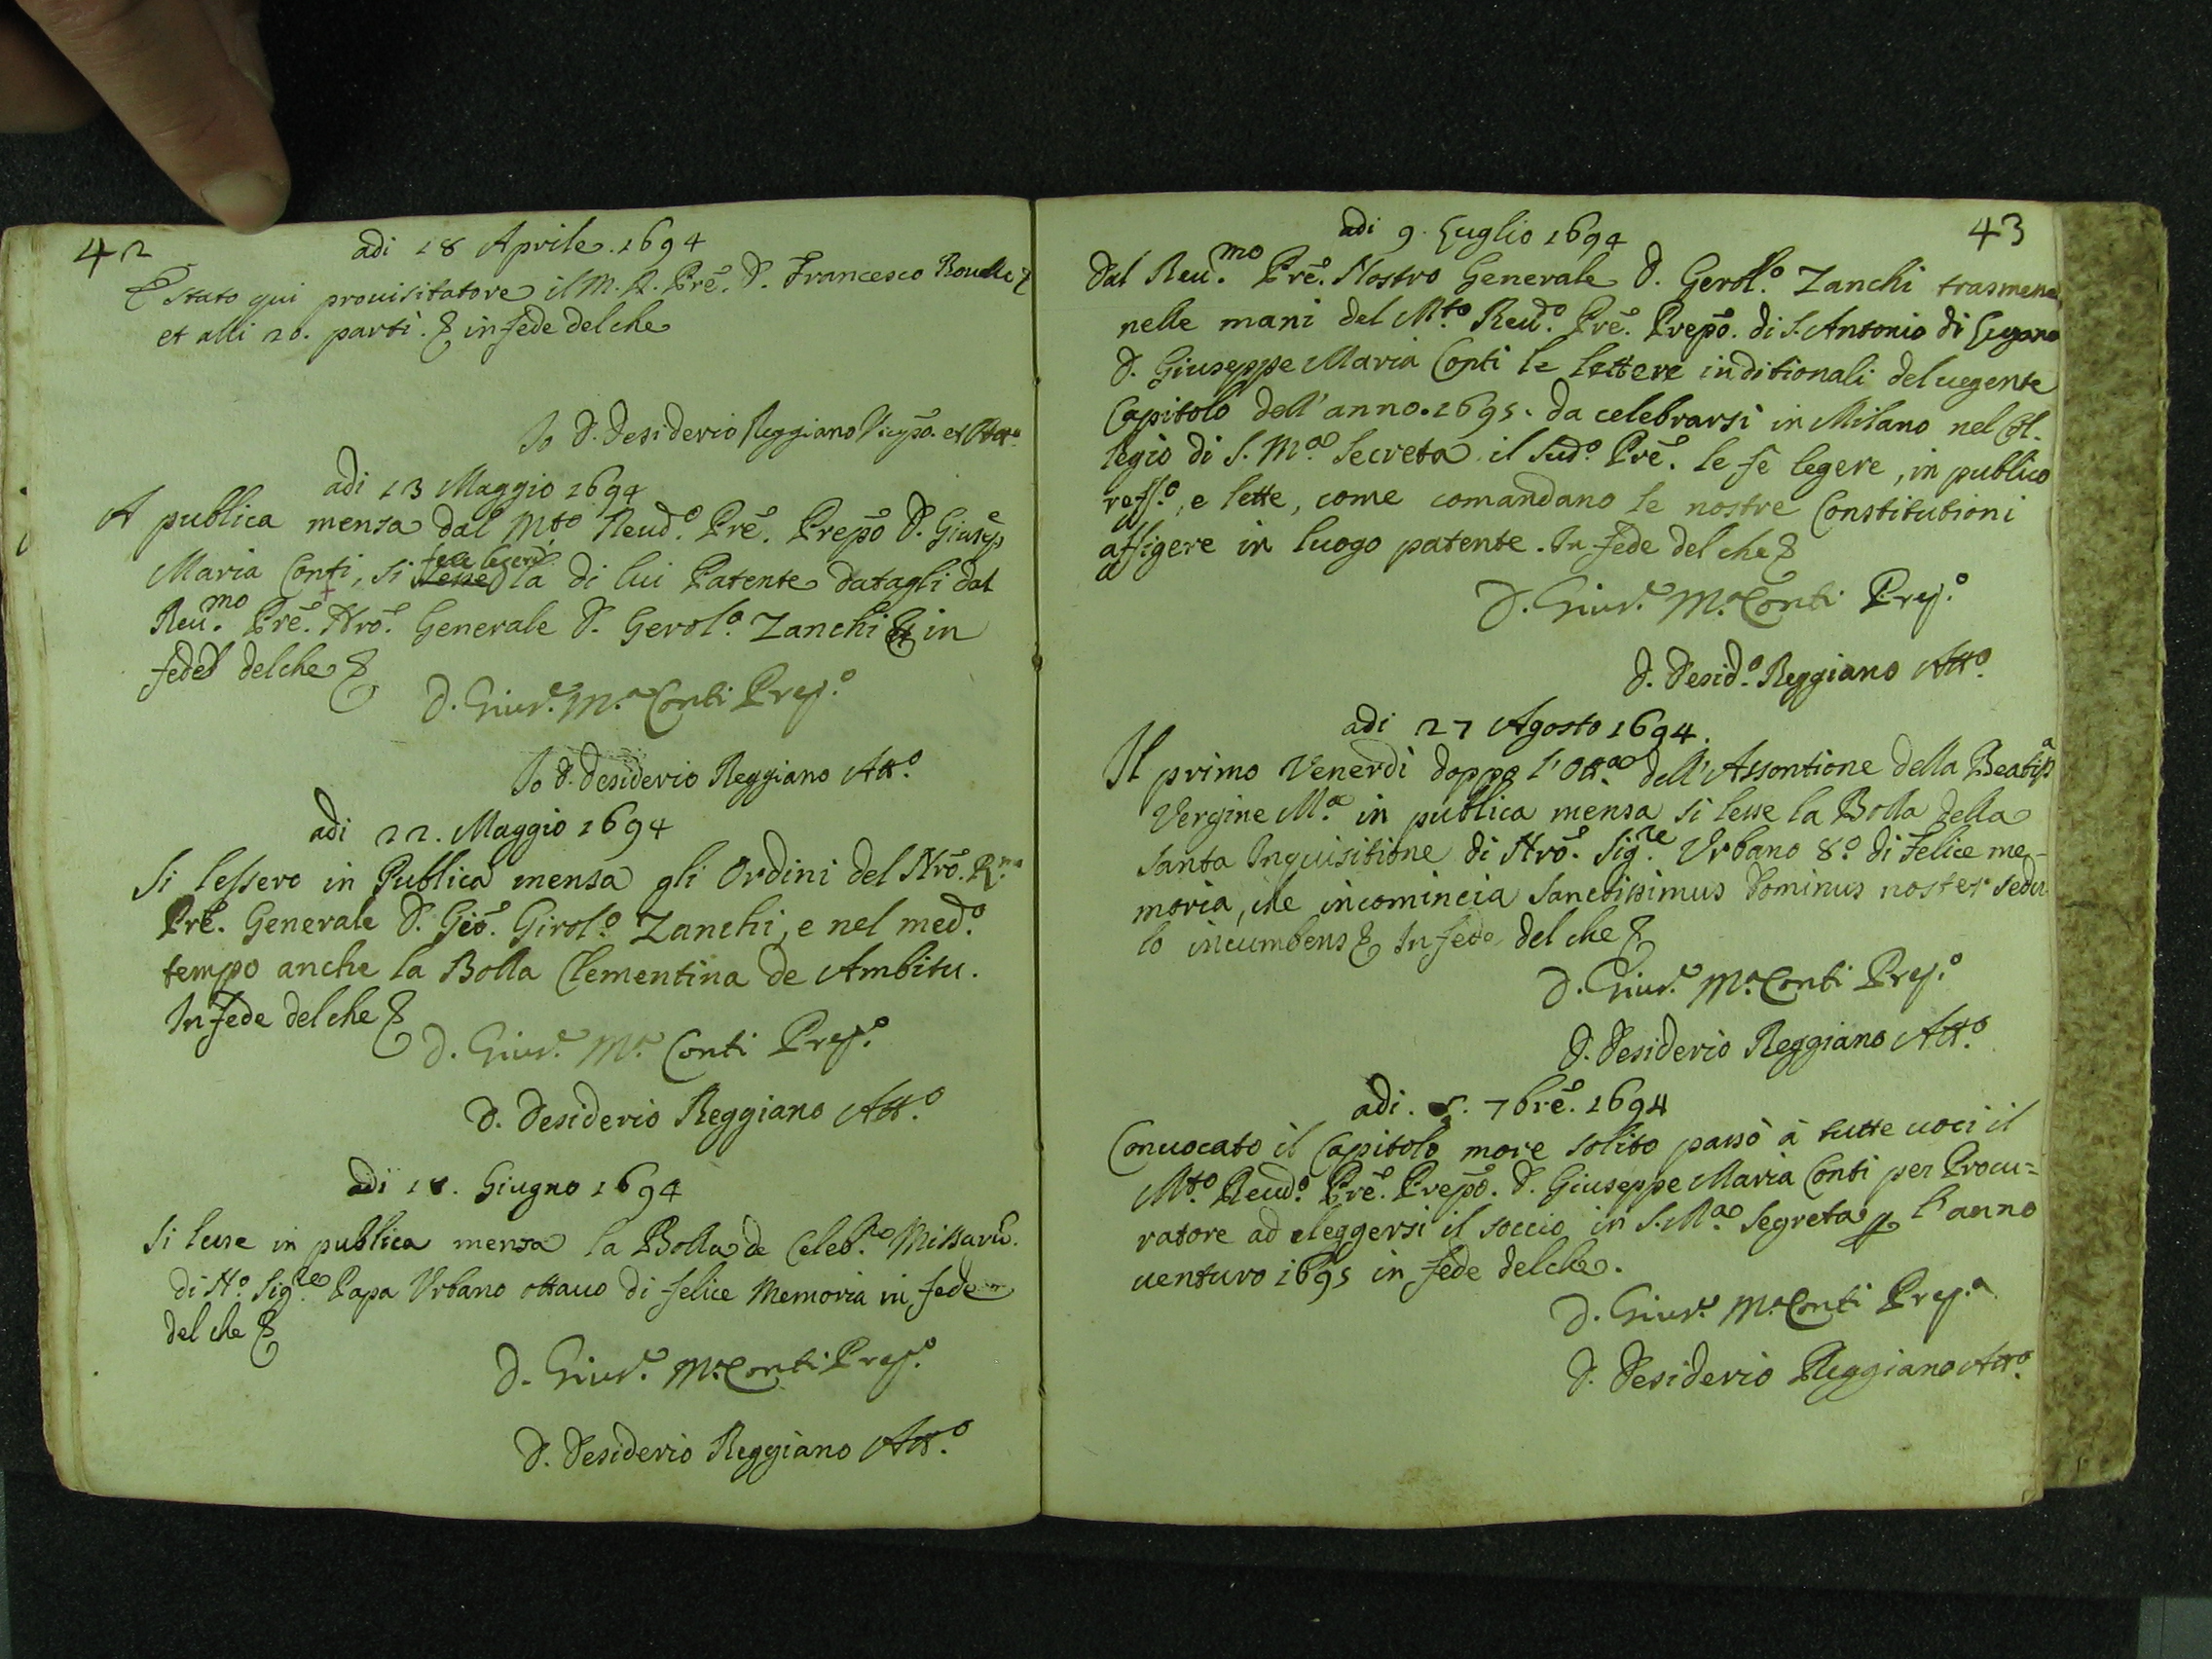 42
adi 18 Aprile. 1694
È stato qui prouisitatore il M. R. Prē. D. Francesco
et alli 20. partì. & in fede del che
Io D. Desiderio Reggiano Vicepo. et Atto.
adi 13 Maggio 1694
A publica mensa dal Mto Reudo. Prē. Prepō D. Giusepe
Maria Conti, si fece legere la di lui Patente datagli dal
Reu.mo Prē. Nrō. Generale D. Gerol.o Zanchi & in
fede del che &
D. Gius.e M.a Conti Prep.o
Io D. Desiderio Reggiano Att.o
adi 22. Maggio 1694
Si lessero in Publica mensa gli Ordini del Nrō. R.mo
Prē. Generale D. Giō. Girol.o Zanchi, e nel med.o
tempo anche la Bolla Clementina de Ambitu.
In fede del che &
D. Gius.e M.a Conti Prep.o
D. Desiderio Reggiano Att.o
adi 18. Giugno 1694
Si lesse in publica mensa la Bolla de Celeb.ne Missarū.
di N.o Sig.re Papa Vrbano ottauo di felice Memoria in fede
del che &
D. Gius.e M.a Conti Prep.o
D. Desiderio Reggiano Att.o
43
adi 9. Luglio 1694
Dal Reu.mo Prē. Nostro Generale D. Gerol.o Zanchi trasmesse
nelle mani del Mto. Reud.o Prē. Prepō. di S. Antonio di Lugano
D. Giuseppe Maria Conti le lettere inditionali del uegente
Capitolo dell'anno. 1695. da celebrarsi in Milano nel Col.
legio di S. M.a Secreta il sud.o Prē. le fè legere, in publico
reff.o, e lette, come comandano le nostre Constitutioni
affigere in luogo patente. In fede del che &
D. Gius.e M.a Conti Prep.o
D. Desid.o Reggiano Att.o
adi 27 Agosto 1694.
Il primo Venerdì doppo l'Ott.a dell'Assontione della Beatiss.a
Vergine M.a in publica mensa si lesse la Bolla della
Santa Inquisitione di Nrō. Sig.re Vrbano 8.o di felice me-
moria, che incomincia Sanctissimus Dominus noster sedu
lo incumbens & In fede del che &
D. Gius.e M.a Conti Prep.o
D. Desiderio Reggiano Att.o
adi. 5. 7brē. 1694
Conuocato il Capitolo more solito passò à tutte uoci il
Mto. Reud.o Prē. Prepō. D. Giuseppe Maria Conti per Procu=
ratore ad eleggersi il soccio in S. M.a Segreta p l'anno
uenturo 1695 in fede del che.
D. Gius.e M.a Conti Prep.o
D. Desiderio Reggiano Att.o